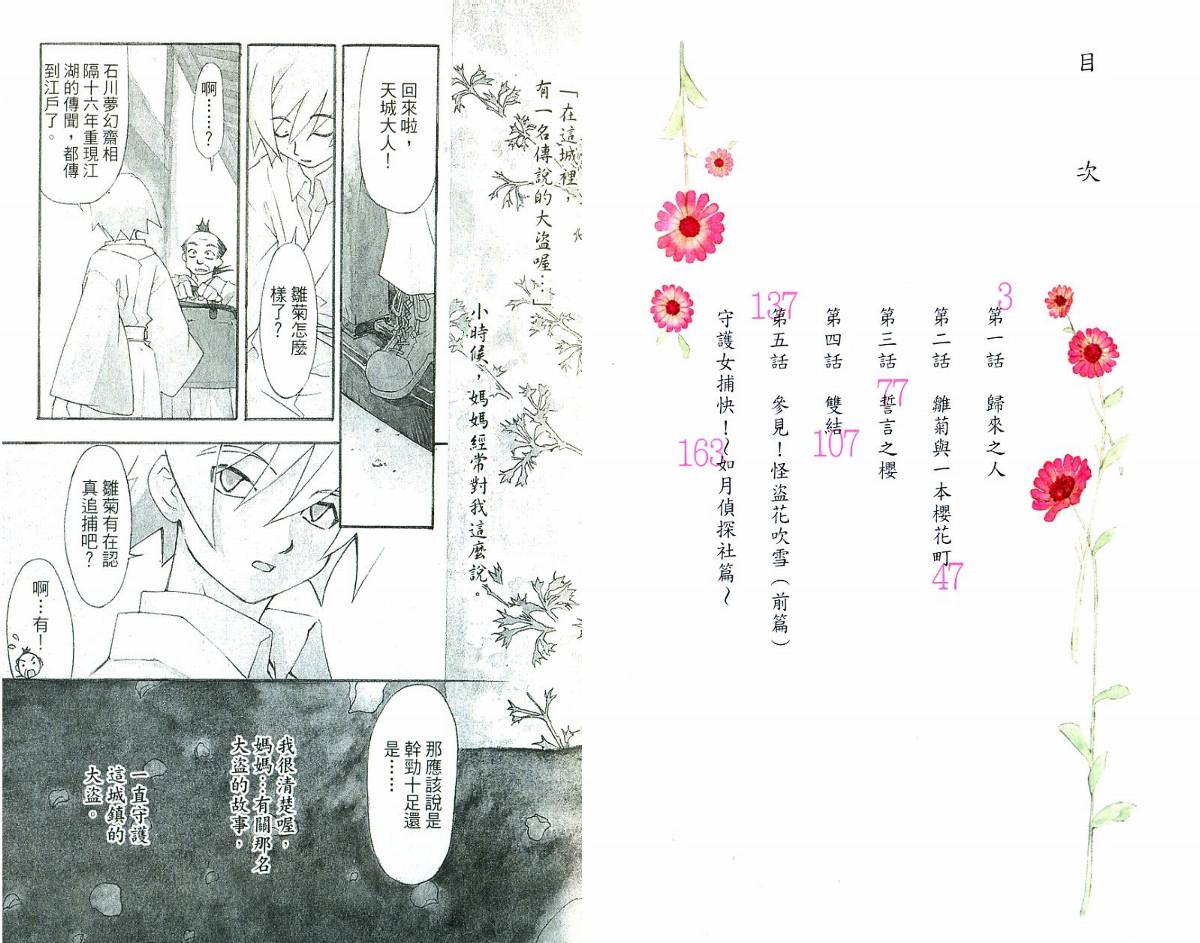 目次
3
第一話 歸來之人
第二話 雛菊與一本櫻花町
47
第三話 誓言之櫻
77
第四話 雙結
107
137
第五話 參見！怪盜花吹雪（前篇）
守護女捕快！～如月偵探社篇～
163
「在這城裡，
有一名傳說的大盜喔…」
小時候，媽媽經常對我這麼說。
回來啦，
天城大人！
雛菊怎麼
樣了？
啊……？
石川夢幻齋相
隔十六年重現江
湖的傳聞，都傳
到江戶了。
雛菊有在認
真追捕吧？
啊…有！
那應該說是
幹勁十足還
是……
我很清楚喔，
媽媽…有關那名
大盜的故事，
一直守護
這城鎮的
大盜。